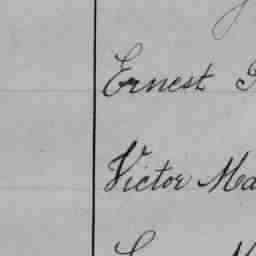 Ernest
Victor Ma